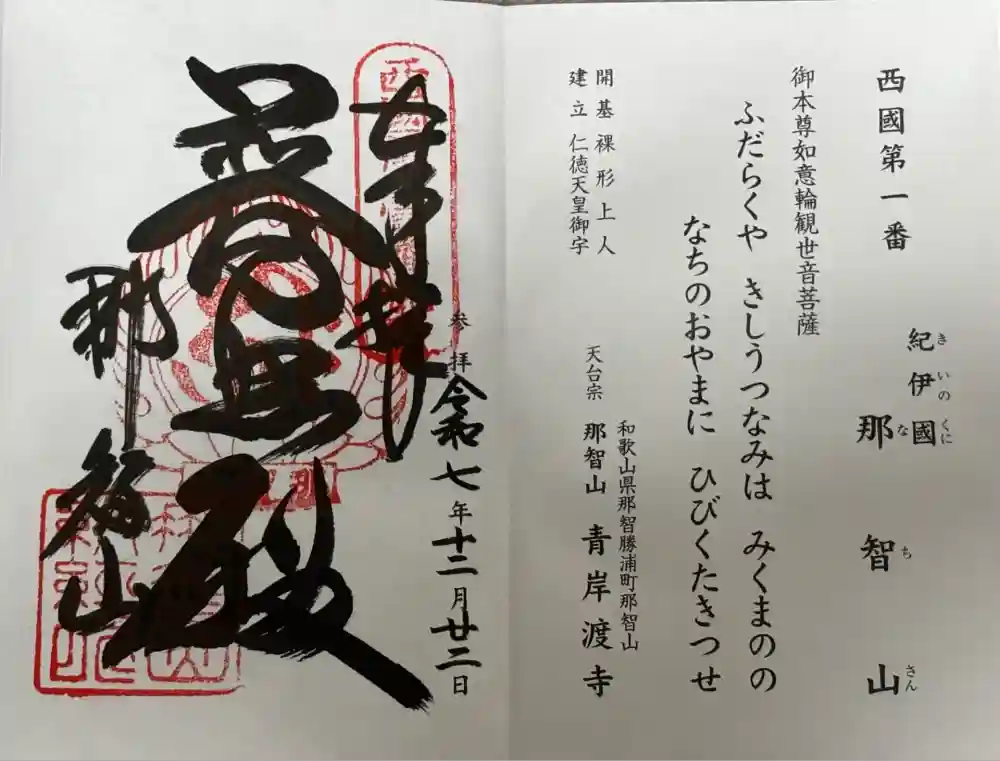 西國第一番
紀伊國
きいのくに
那智山
なちさん
御本尊如意輪観世音菩薩
ふだらくや きしうつなみは みくまのの
なちのおやまに ひびくたきつせ
開基 裸形上人
建立 仁徳天皇御宇
天台宗
和歌山県那智勝浦町那智山
那智山 青岸渡寺
奉拝
参拝 令和七年十二月廿二日
普照殿
那智山